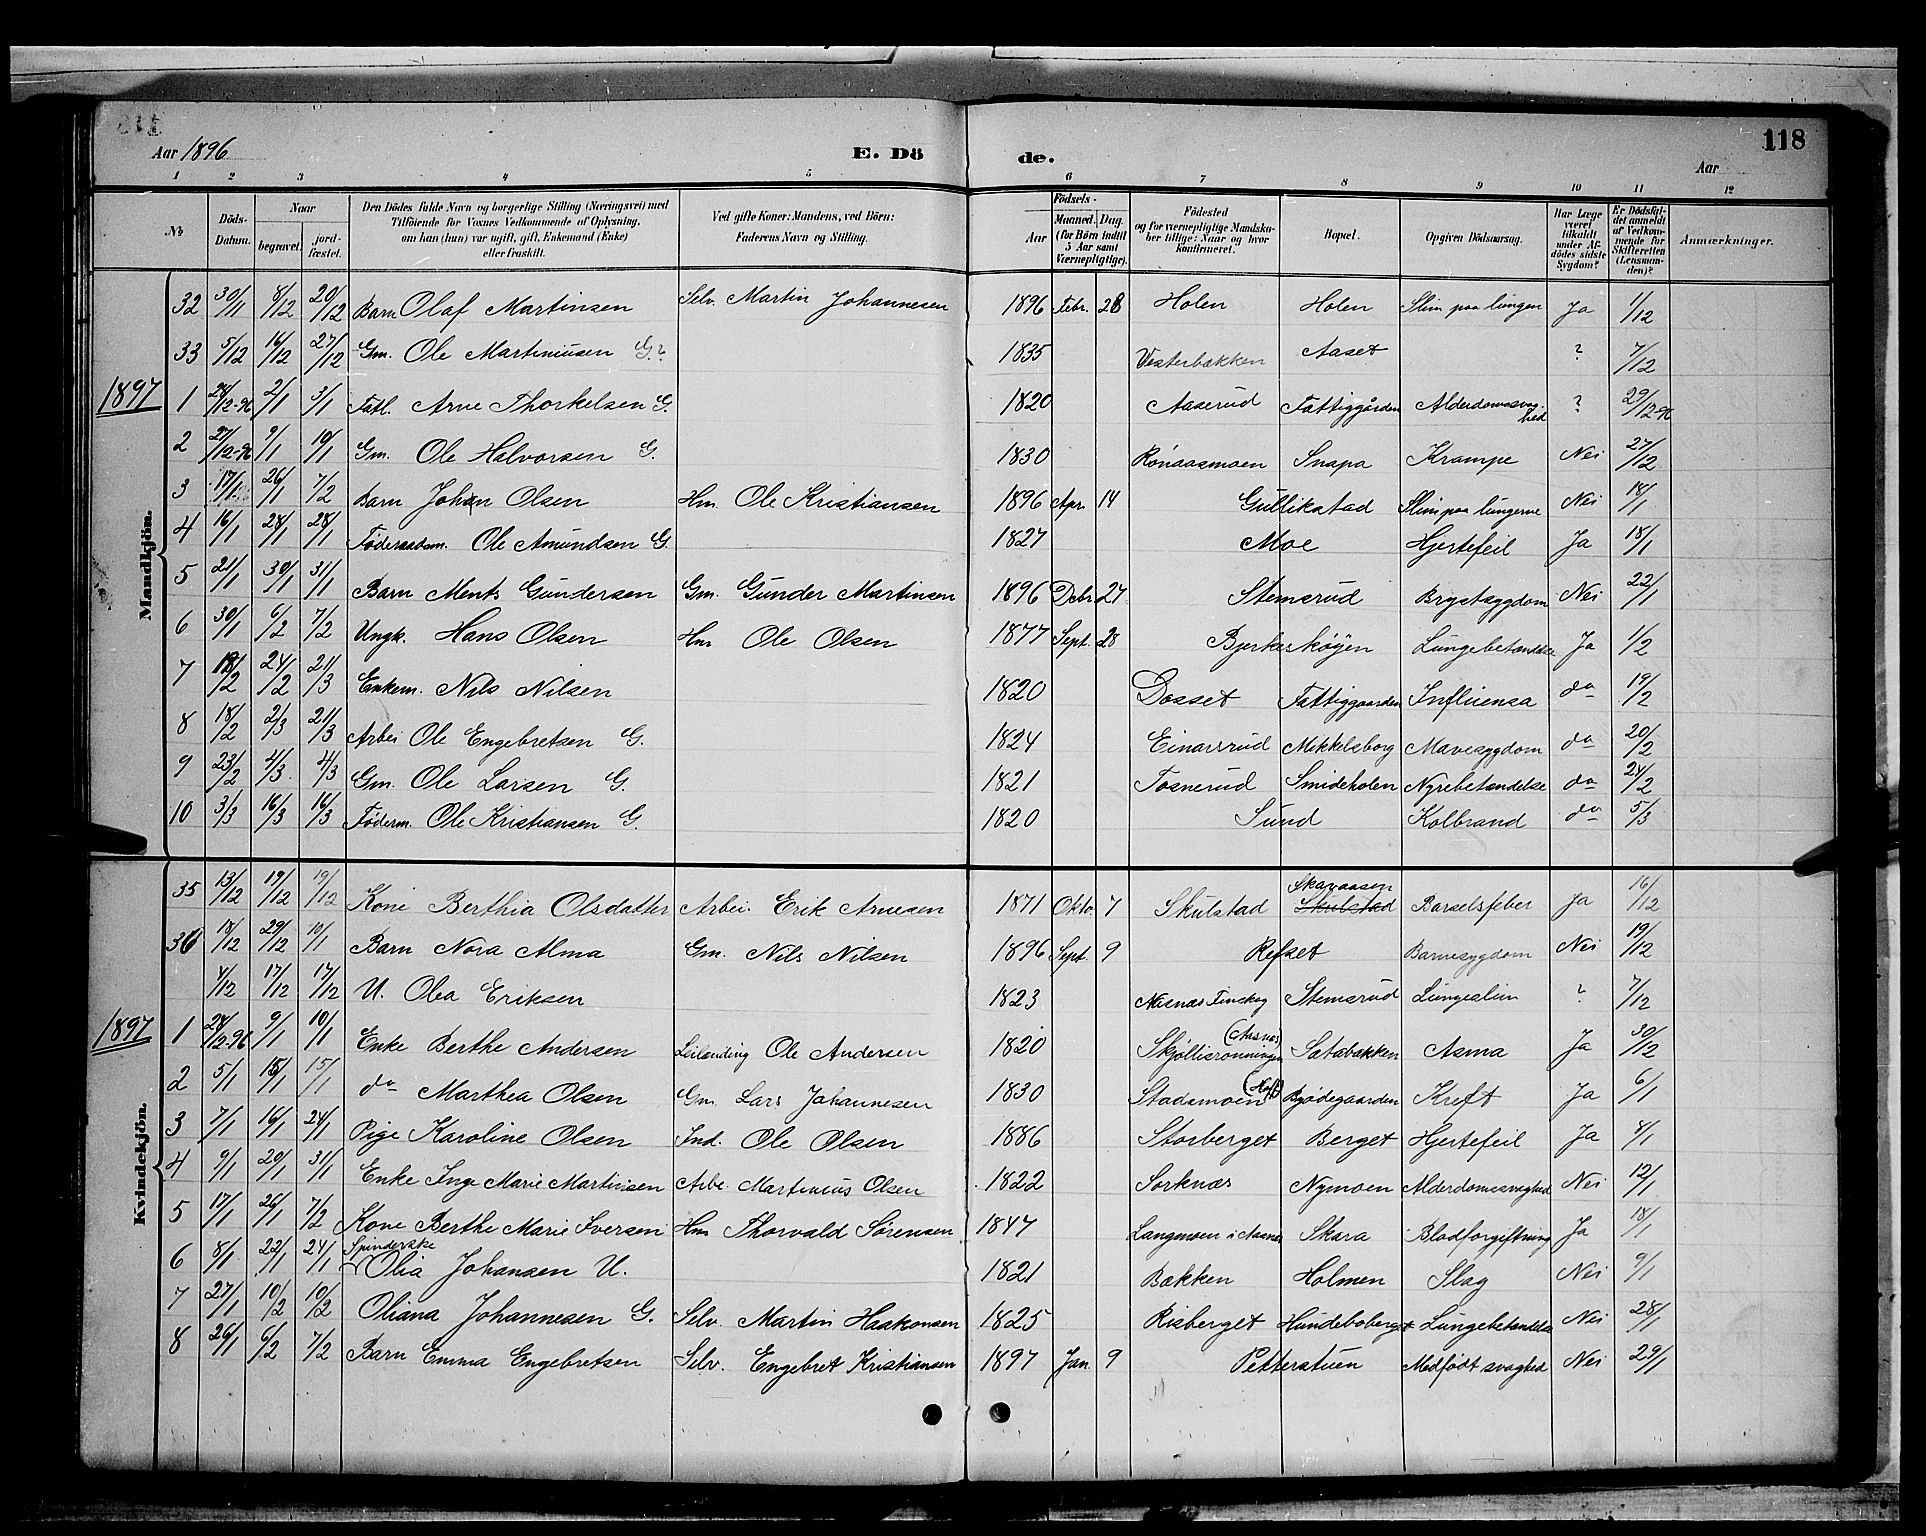 Aar 1896
E. Dö
de.
118
Aar
1 2 3 4 5 6 7 8 9 10 11 12
№ | Döds-Datum. | Naar begravet. | jord-fæstet. | Den Dödes fulde Navn og borgerlige Stilling (Næringsvei) med Tilföiende for Voxnes Vedkommende af Oplysning, om han (hun) var ugift, gift, Enkemand (Enke) eller fraskilt. | Ved gifte Koner: Mandens, ved Börn: Faderens Navn og Stilling. | Födsels- Aar | Maaned. | Dag. (for Börn indtil 5 Aar samt Værnepligtige). | Födested og for værnepligtige Mandskaber tillige: Naar og hvor konfirmeret. | Bopæl. | Opgiven Dödsaarsag. | Har Læge været tilkaldt under Afdödes sidste Sygdom? | Er Dödsfaldet anmeldt af Vedkommende for Skifteretten (Lensmanden)? | Anmærkninger.
Mandkjön.
32 30/11 8/12 20/12 Barn Olaf Martinsen Selv. Martin Johannesen 1896 Febr. 28 Holen Holen Slim paa lungen Ja 1/12
33 5/12 16/12 27/12 Gm. Ole Martiniusen G? 1835 Vesterbakken Aaset ? 7/12
1897 1 28/12-96 2/1 3/1 Fatl. Arne Thorkelsen G. 1820 Aaserud Fattiggården Alderdomssvaghed ? 29/12-96
2 27/12-96 9/1 10/1 Gm. Ole Halvorsen G. 1830 Rönaasmoen Snapa Krampe Nei 27/12
3 17/1 26/1 7/2 Barn Johan Olsen Hm Ole Kristiansen 1896 Apr. 14 Gullikstad Slim paa lungerne Nei 18/1
4 16/1 28/1 28/1 Föderaadsm. Ole Amundsen G. 1827 Moe Hjertefeil Ja 18/1
5 21/1 30/1 31/1 Barn Ments Gundersen Gm. Gunder Martinsen 1896 Decbr 27 Stemsrud Brystsygdom Nei 22/1
6 30/1 6/2 7/2 Ungk. Hans Olsen Hm Ole Olsen 1877 Sept. 28 Bjerkeskøyen Lungebetændelse Ja 1/2
7 18/2 24/2 21/3 Enkem. Nils Nilsen 1820 Dosset Fattiggaarden Influensa do 19/2
8 18/2 2/3 21/3 Arbei Ole Engebretsen G. 1824 Einarsrud Mikkelsborg Mavesygdom do 20/2
9 23/2 4/3 4/3 Gm. Ole Larsen G. 1821 Tosnerud Smideholen Nyrebetændelse do 24/2
10 3/3 16/3 16/3 Föderm. Ole Kristiansen G. 1820 Sund Kolbrand do 5/3
Kvindekjön.
35 13/12 19/12 19/12 Kone Berthia Olsdatter Arbei. Erik Arnesen 1871 Okto. 7 Skulstad Skulstad Skavaasen Barselsfeber Ja 16/12
36 18/12 29/12 10/1 Barn Nora Alma Gm. Nils Nilsen 1896 Sept. 9 Refset Barnesygdom Nei 19/12
4/12 17/12 17/12 U. Olea Eriksen 1823 Næsnæs Finskog Stemsrud Lungeslim ? 7/12
1897 1 28/12-96 9/1 10/1 Enke Berthe Andersen Leilending Ole Andersen 1820 Skjöllisronningen (Aasnæs) Satabakken Asma Ja 30/12
2 5/1 15/1 15/1 do Marthea Olsen Gm. Lars Johannesen 1830 Stadsmoen (Hof) Bjödegaarden Kreft Ja 6/1
3 7/1 16/1 24/1 Pige Karoline Olsen Ind. Ole Olsen 1886 Storberget Berget Hjertefeil Ja 8/1
4 9/1 20/1 31/1 Enke Inge Marie Martinsen Arbe. Martinius Olsen 1822 Sorknæs Nymoen Alderdomssvaghed Nei 12/1
5 17/1 26/1 7/2 Kone Berthe Marie Iversen Hm Thorvald Sörensen 1847 Langmoen i Aasnæs Skara Blodforgiftning Ja 18/1
6 8/1 22/1 24/1 Spinderske Olia Johansen U. 1821 Bakken Holmen Slag Nei 9/1
7 27/1 10/2 10/2 Oliana Johannesen G. Selv. Martin Haakonsen 1825 Risberget Hundeboberget Lungebetændelse Nei 28/1
8 26/1 6/2 7/2 Barn Emma Engebretsen Selv. Engebret Kristiansen 1897 Jan. 9 Petterstuen Medfødt svaghed Nei 29/1